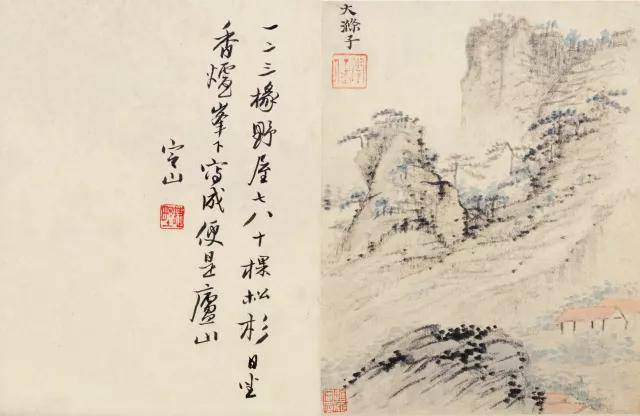 大滌子
一二三椽野屋七八十棵松杉日坐
香爐峯下寫成便是廬山
定山